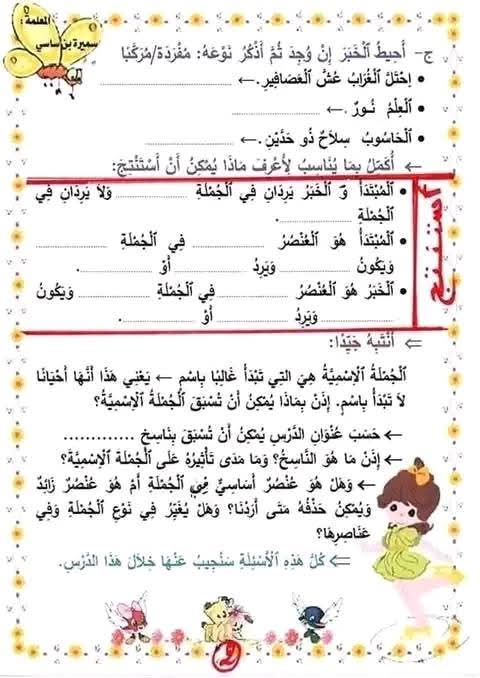 المعلمة:
سميرة بن ساسي
ج- أُحِيطُ الْخَبَرَ إِنْ وُجِدَ ثُمَّ أَذْكُرُ نَوْعَهُ: مُفْرَدَة/مُرَكَّبًا
• اِحْتَلَّ الْغُرَابُ عُشَّ الْعَصَافِيرِ.← ..............................
• الْعِلْمُ نُورٌ .← ..............................
• الْحَاسُوبُ سِلَاحٌ ذُو حَدَّيْنِ.← ..............................
← أُكْمِلُ بِمَا يُنَاسِبُ لِأَعْرِفَ مَاذَا يُمْكِنُ أَنْ أَسْتَنْتِجَ:
أستنتج
• الْمُبْتَدَأُ وَ الْخَبَرُ يَرِدَانِ فِي الْجُمْلَةِ .................. وَلَا يَرِدَانِ فِي
الْجُمْلَةِ ..................
• الْمُبْتَدَأُ هُوَ الْعُنْصُرُ .................. فِي الْجُمْلَةِ ..................
وَيَكُونُ .................. وَيَرِدُ .................. أَوْ ...................
• الْخَبَرُ هُوَ الْعُنْصُرُ .................. فِي الْجُمْلَةِ .................. وَيَكُونُ
.................. وَيَرِدُ .................. أَوْ ...................
⇐ أَنْتَبِهُ جَيِّدًا:
الْجُمْلَةُ الْاِسْمِيَّةُ هِيَ التِي تَبْدَأُ غَالِبًا بِاسْمٍ ← يَعْنِي هَذَا أَنَّهَا أَحْيَانًا
لَا تَبْدَأُ بِاسْمٍ. إِذَنْ بِمَاذَا يُمْكِنُ أَنْ تُسْبَقَ الْجُمْلَةُ الْاِسْمِيَّةُ؟
← حَسَبَ عُنْوَانِ الدَّرْسِ يُمْكِنُ أَنْ تُسْبَقَ بِنَاسِخٍ .............
← إِذَنْ مَا هُوَ النَّاسِخُ؟ وَمَا مَدَى تَأْثِيرُهُ عَلَى الْجُمْلَةِ الْاِسْمِيَّةِ؟
← وَهَلْ هُوَ عُنْصُرٌ أَسَاسِيٌّ فِي الْجُمْلَةِ أَمْ هُوَ عُنْصُرٌ زَائِدٌ
وَيُمْكِنُ حَذْفُهُ مَتَى أَرَدْنَا؟ وَهَلْ يُغَيِّرُ فِي نَوْعِ الْجُمْلَةِ وَفِي
عَنَاصِرِهَا؟
⇐ كُلُّ هَذِهِ الْأَسْئِلَةِ سَنُجِيبُ عَنْهَا خِلَالَ هَذَا الدَّرْسِ.
2